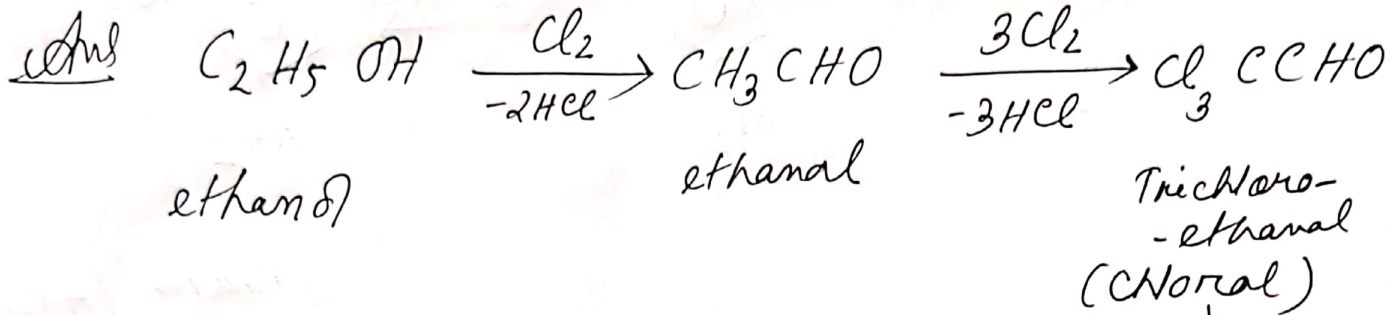 Ans C₂H₅OH —Cl₂/-2HCl→ CH₃CHO —3Cl₂/-3HCl→ Cl₃CCHO
ethanol ethanal Trichloro-
-ethanal
(Chloral)